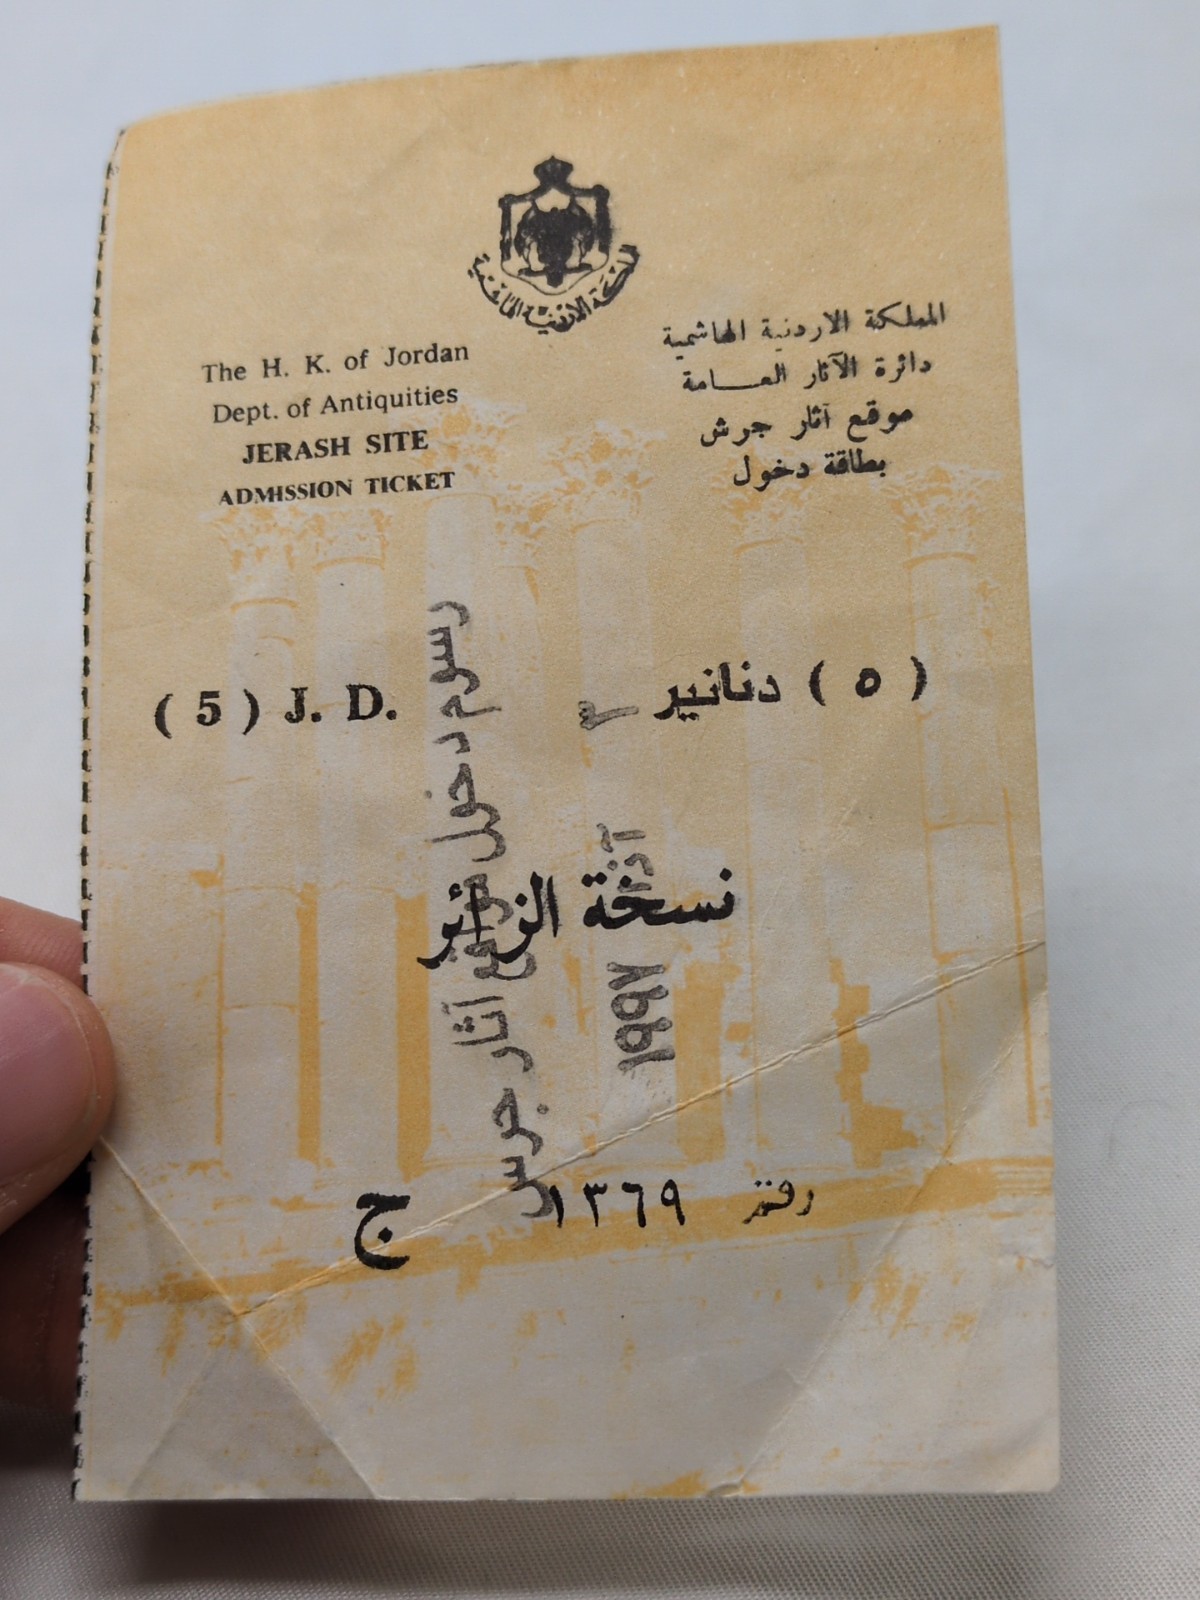 المملكة الاردنية الهاشمية
The H. K. of Jordan
Dept. of Antiquities
JERASH SITE
ADMISSION TICKET
المملكة الاردنية الهاشمية
دائرة الآثار العـــامة
موقع آثار جرش
بطاقة دخول
( 5 ) J. D.
( ٥ ) دنانير
نسخة الزائر
رقم ١٣٦٩
ج
رسوم دخول موقع آثار جرش
٣
آذار
١٩٩٧